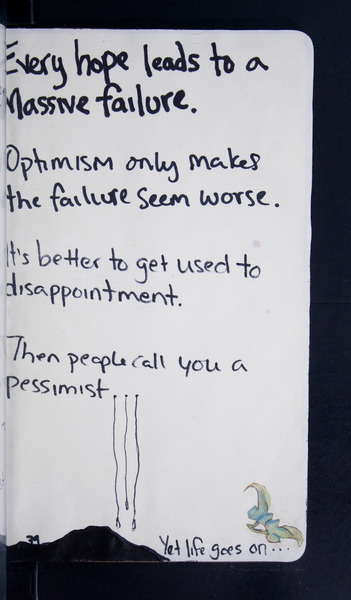 Every hope leads to a
Massive failure.
Optimism only makes
the failure seem worse.
It's better to get used to
disappointment.
Then people call you a
pessimist...
39
Yet life goes on...